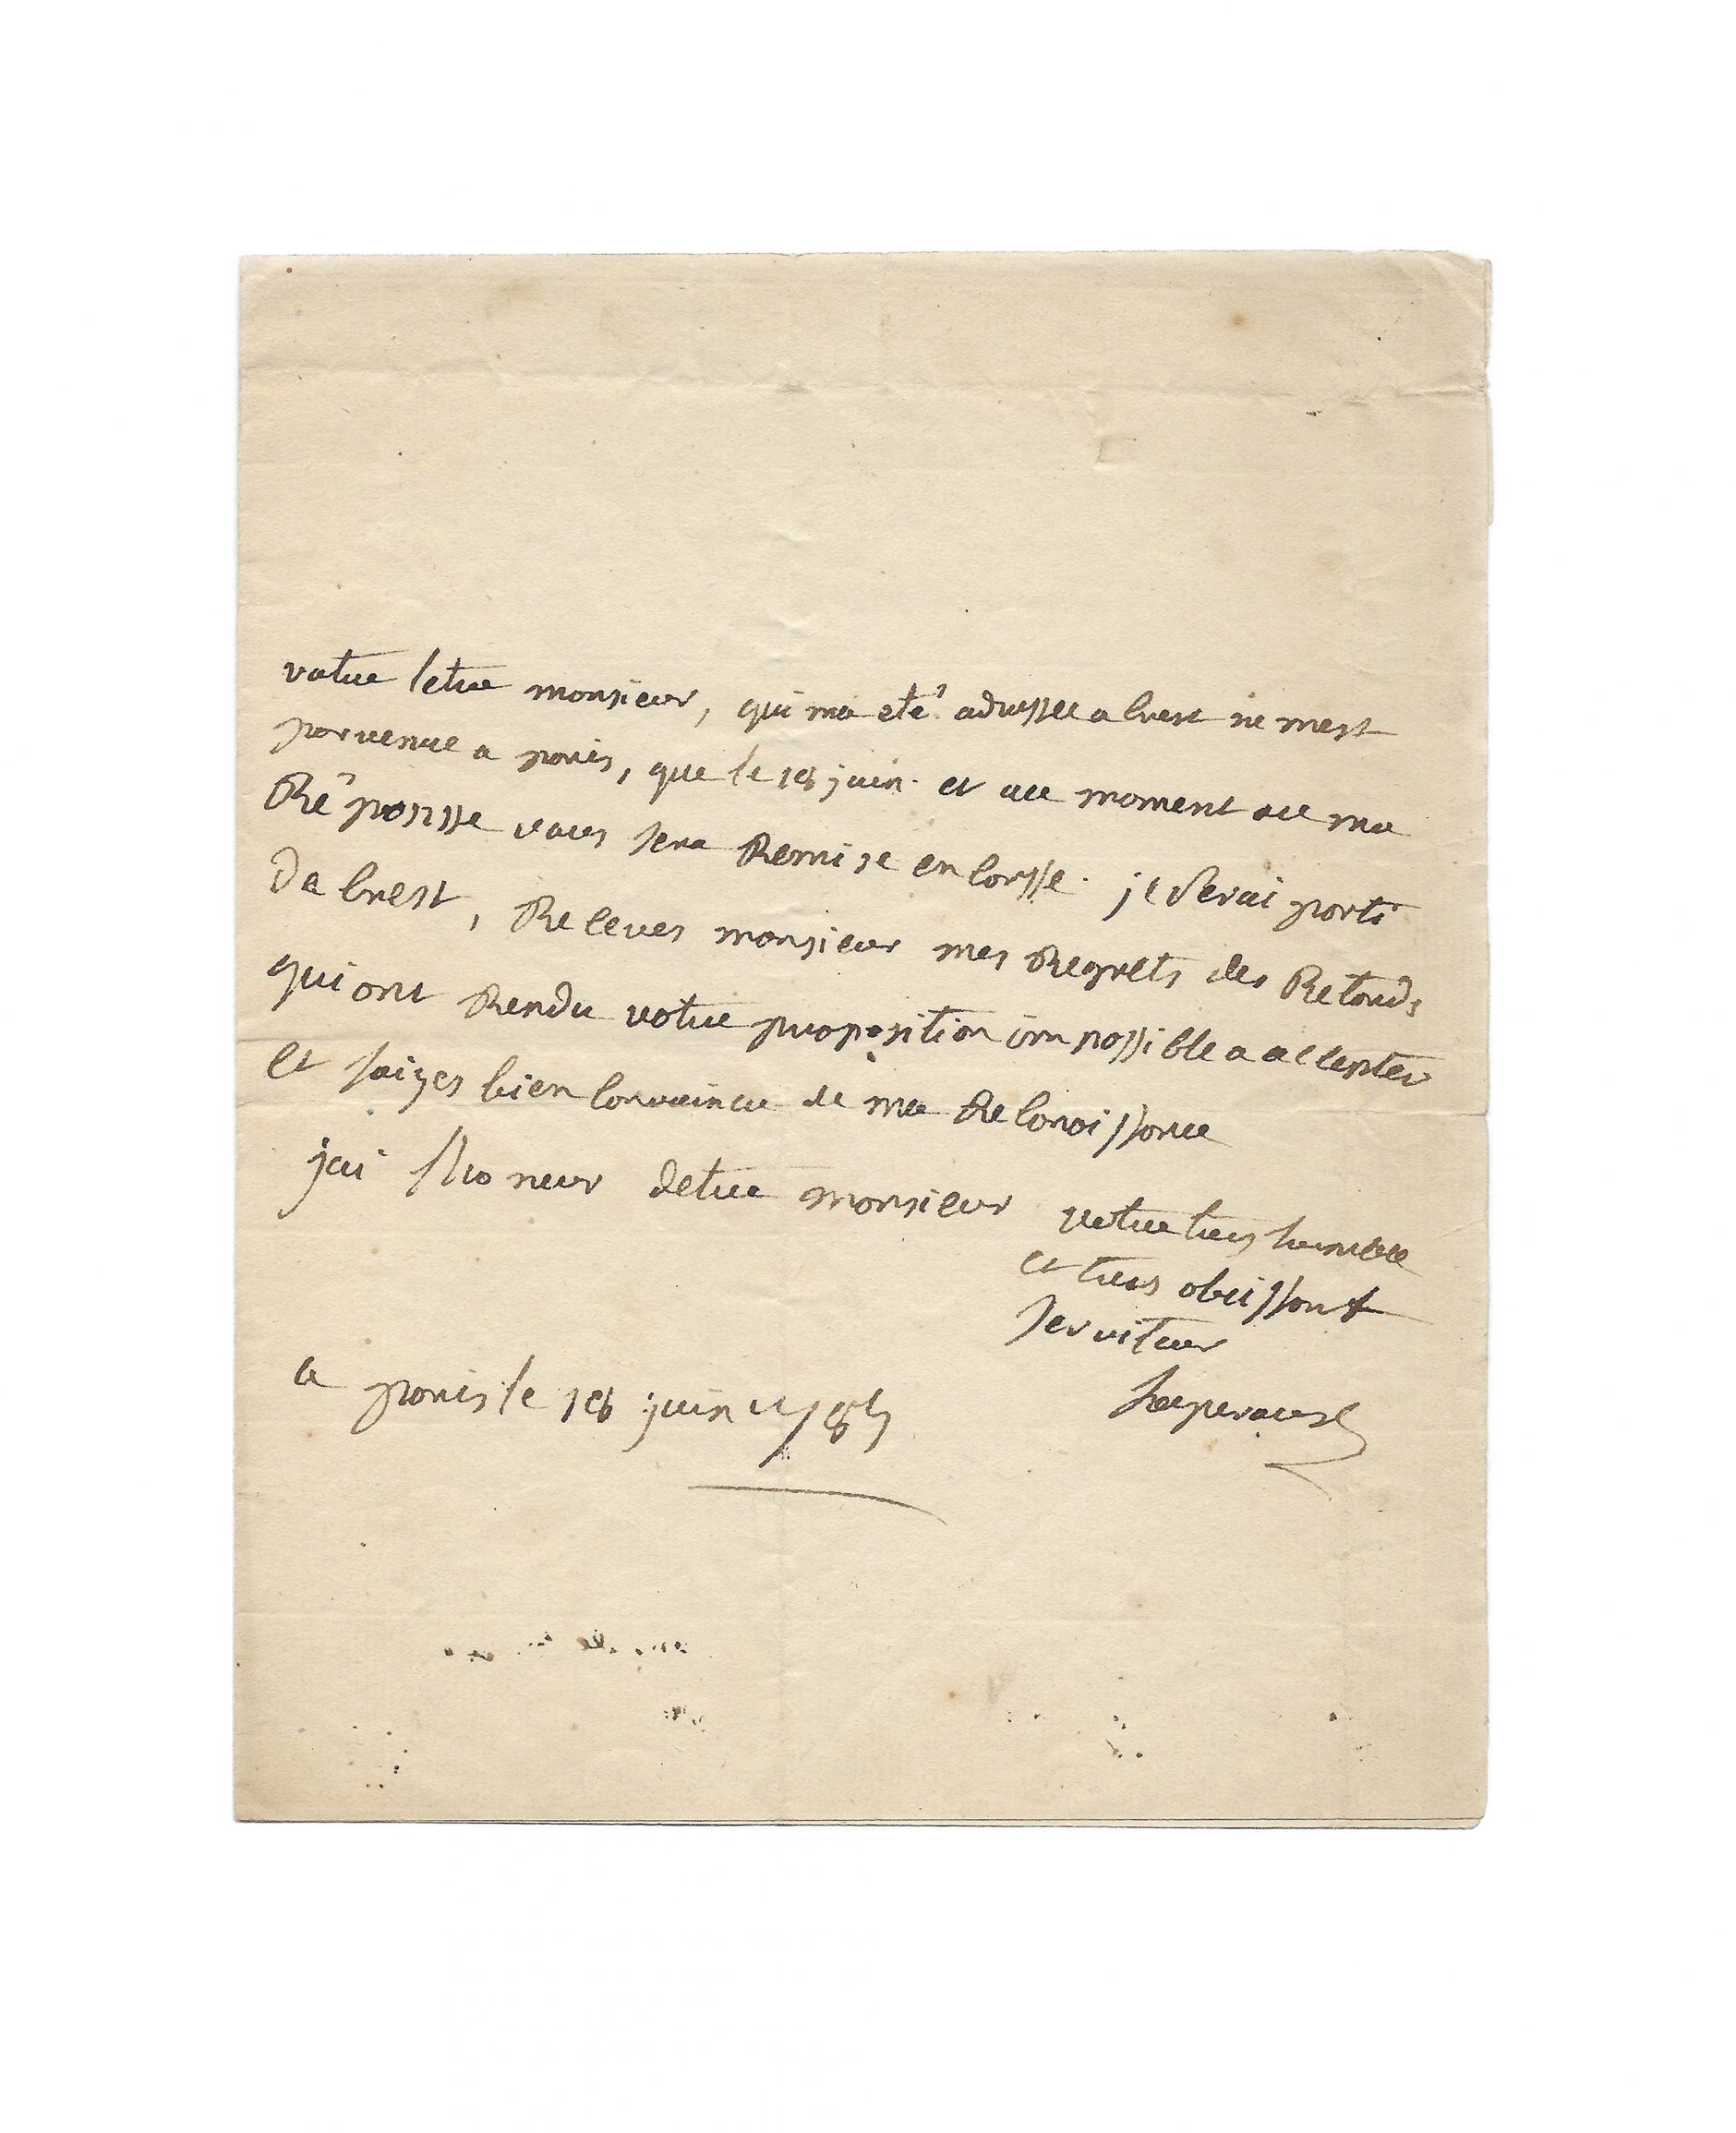 votre letre monsieur, qui ma eté adressee a brest ne mest
parvenue a paris, que le 18 juin. et au moment ou ma
Réponsse vous sera Remise en Corsse. je serai parti
de brest, Receves monsieur mes Regrets des Retards
qui ont Rendu votre proposition impossible a accepter
et soiyes bien convaincu de ma Reconoissance
jai lhoneur detre monsieur votre tres humble
et tres obeissant
serviteur
Laperouse
a paris le 18 juin 1785